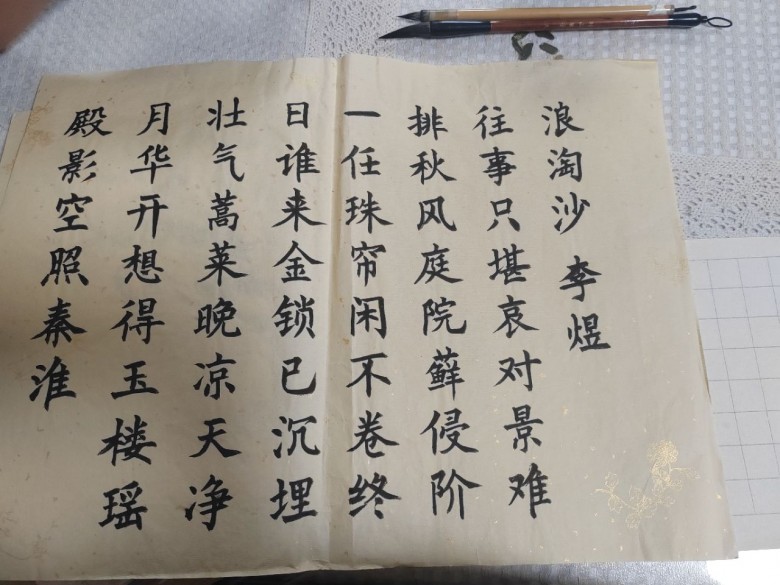 浪淘沙 李煜
往事只堪哀对景难
排秋风庭院藓侵阶
一任珠帘闲不卷终
日谁来金锁已沉埋
壮气蒿莱晚凉天净
月华开想得玉楼瑶
殿影空照秦淮